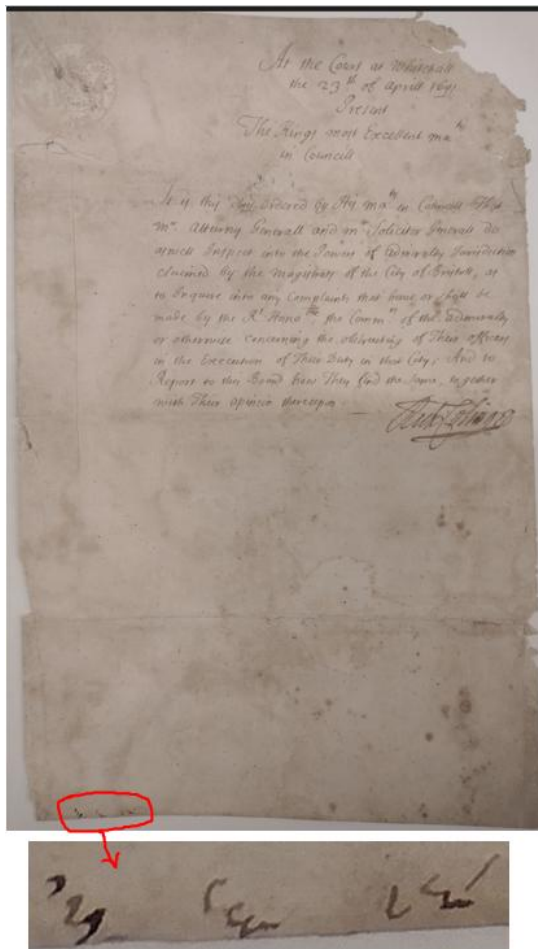 At the Court at Whitehall
the 23th of April 1691
Present
The Kings most Excellent Maty
in Councill
It is this day Ordered by His Maty in Councill That
Mr. Attorny Generall and Mr Solicitor Generall Do
Inspect into the Powers of Admiralty Jurisdiction
claimed by the Magistrates of the City of Bristoll, as
to Inquire into any Complaints that have or shall be
made by the Rt Honoble the Commrs of the Admiralty
or otherwise concerning the obstructing of Their officers
in the Execution of Their Duty in that City; And to
Report to this Board how They find the same, together
with Their opinion thereupon